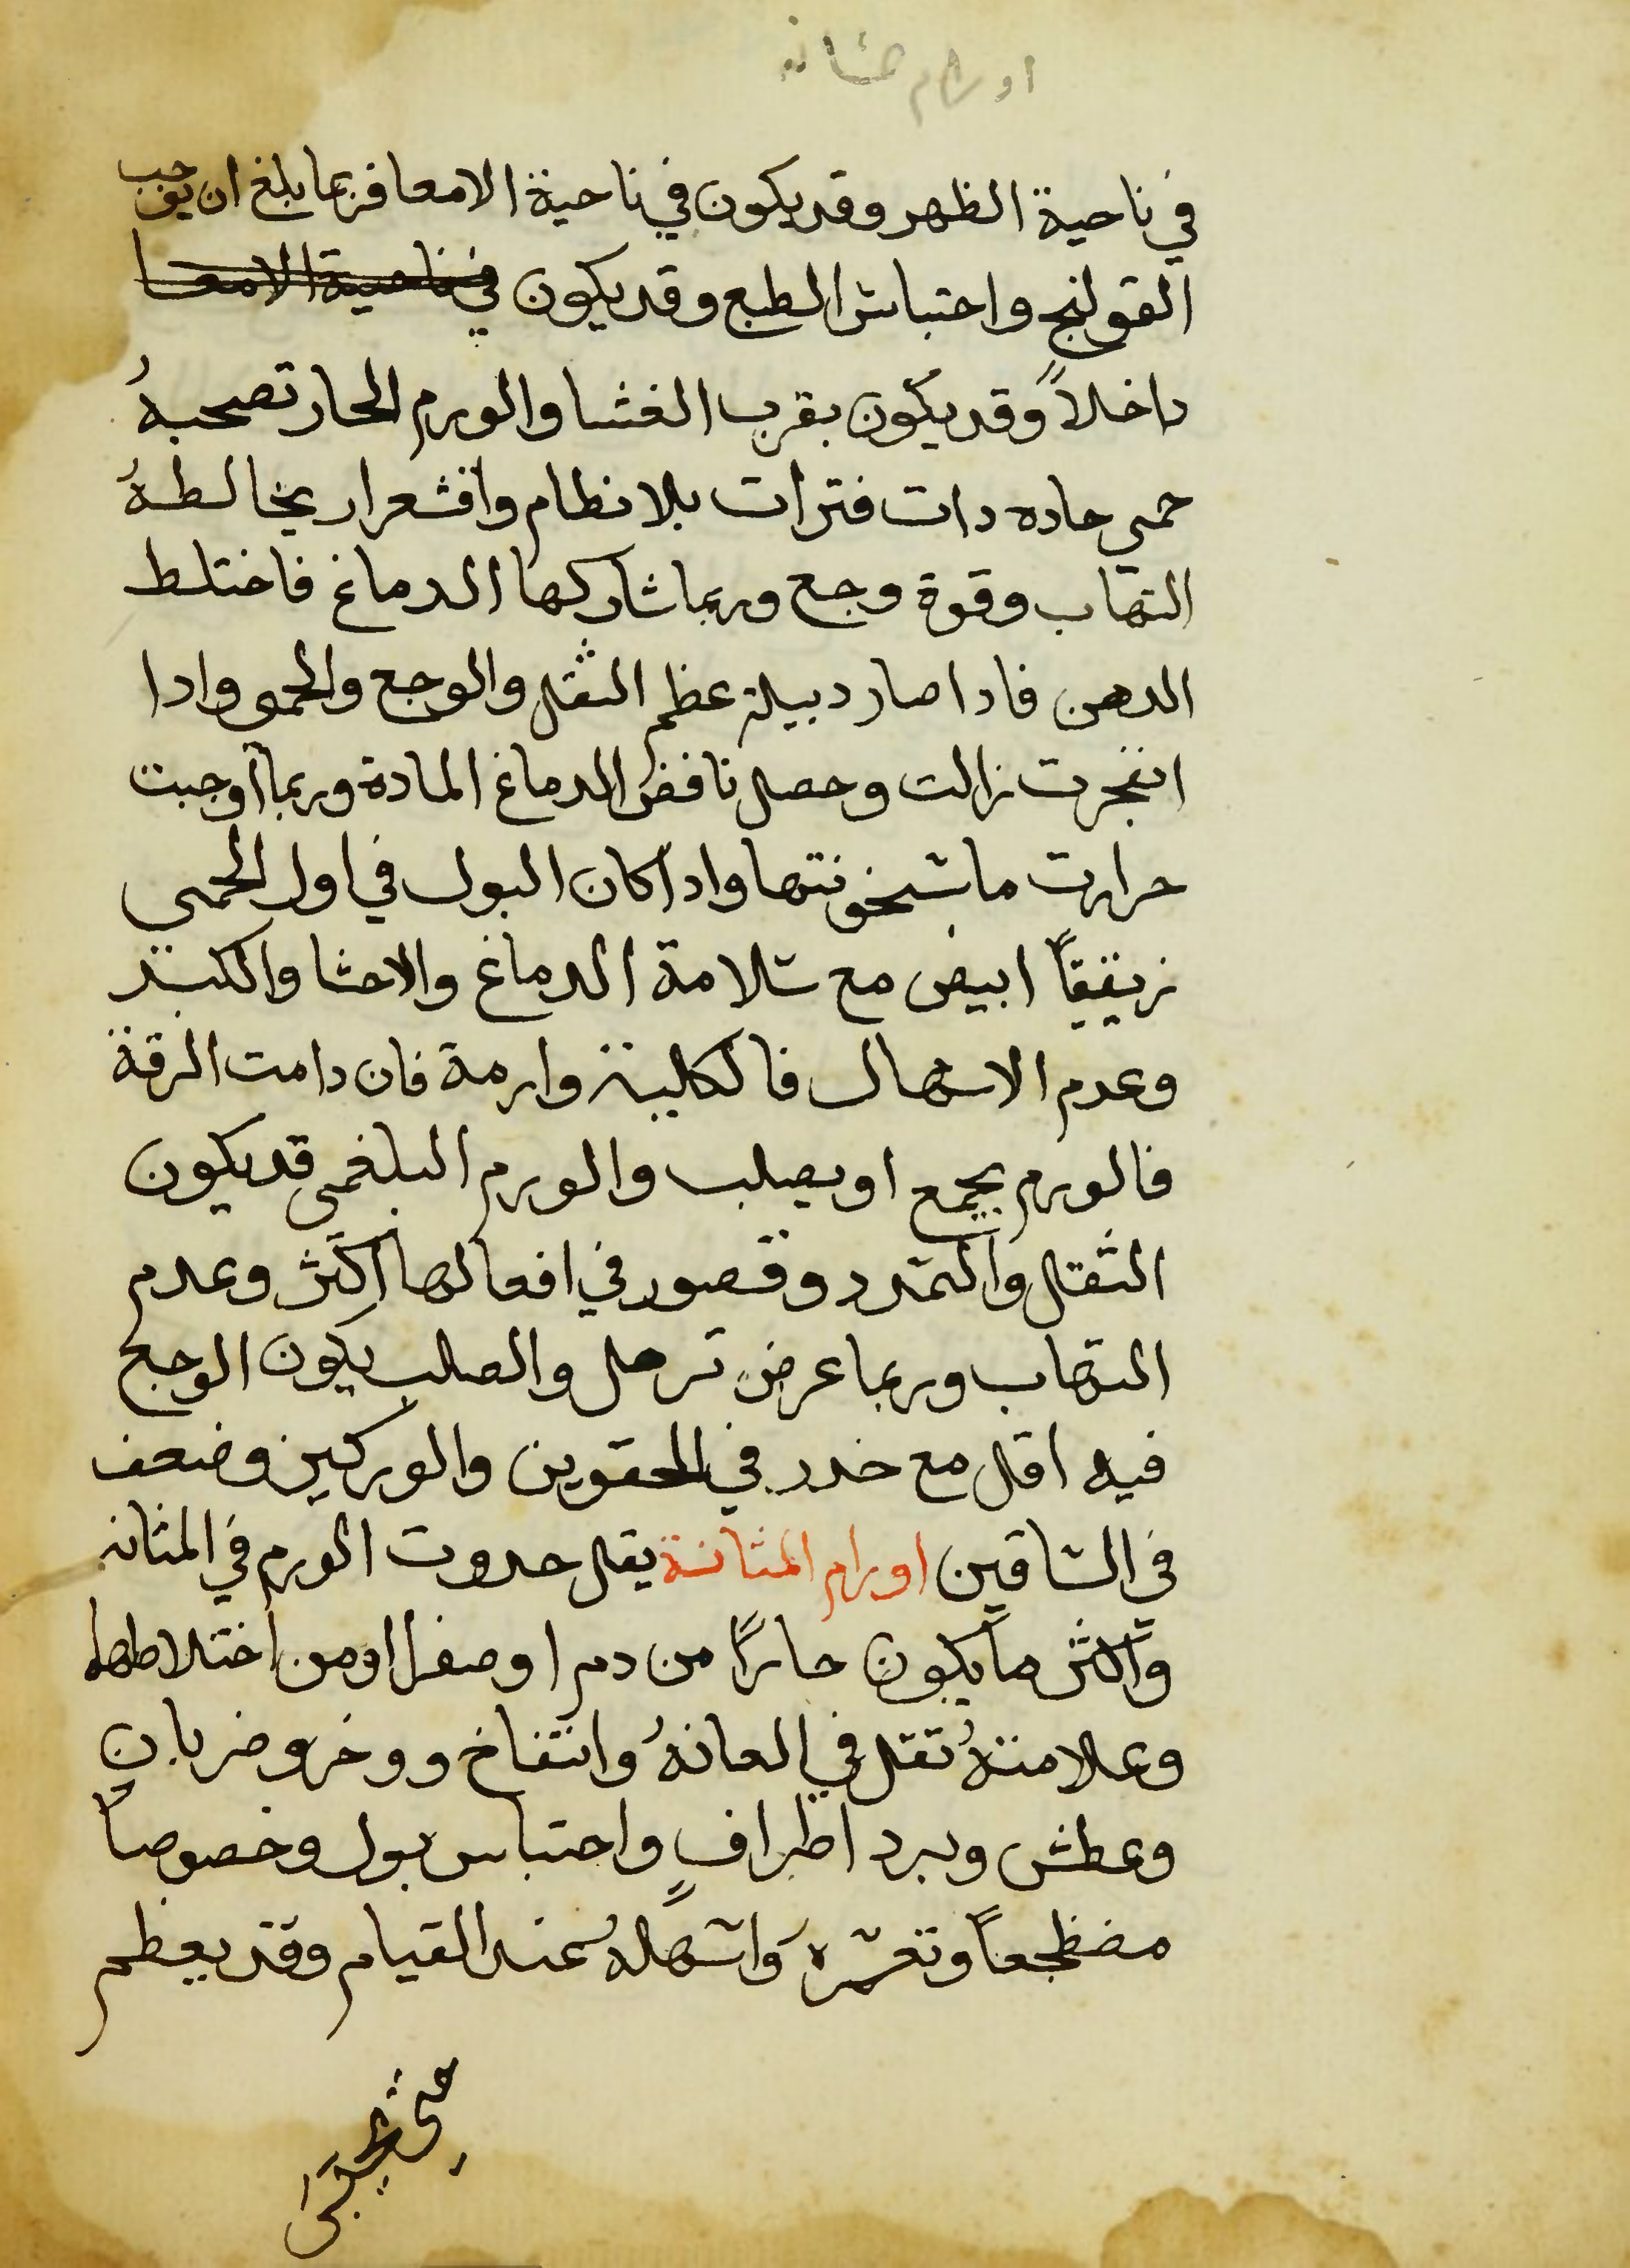 اورام مثانه
في ناحية الظهر وقد يكون في ناحية الامعا فربما بلغ ان يوجب
القولنج واحتباس الطبع وقد يكون في ناحية الامعا
داخلاً وقد يكون بقرب الغشا والورم الحار تصحبهُ
حمي حاده دات فترات بلا نظام واقشعرار يخالطهُ
التهاب وقوة وجع وربما شاركها الدماغ فاختلط
الدهن فادا صار دبيلة عظم الثقل والوجع والحمى وادا
انفجرت زالت وحصل نافض الدماغ المادة وربما اوجبت
حرارت ما سخونتها وادا كان البول في اول الحمي
رقيقاً ابيض مع سلامة الدماغ والاحشا والكبد
وعدم الاسهال فالكلية وارمة فان دامت الرقة
فالورم يجمع او يصلب والورم البلغمي قد يكون
الثقل والتمدد وقصور في افعالها اكثر وعدم
التهاب وربما عرض ترهل والصلب يكون الوجع
فيه اقل مع خدر في الحقوين والوركين وضعف
في الساقين اورام المثانة يقل حدوت الورم في المثانه
واكثر ما يكون حاراً من دم او صفرا او من اختلاطها
وعلامتهُ تقل في العانهُ وانتفاخ ووخز وضربان
وعطش وبرد اطرافٍ واحتباس بول وخصوصاً
مضطجعاً وتعسره واسهالهُ عند القيام وقد يعظم